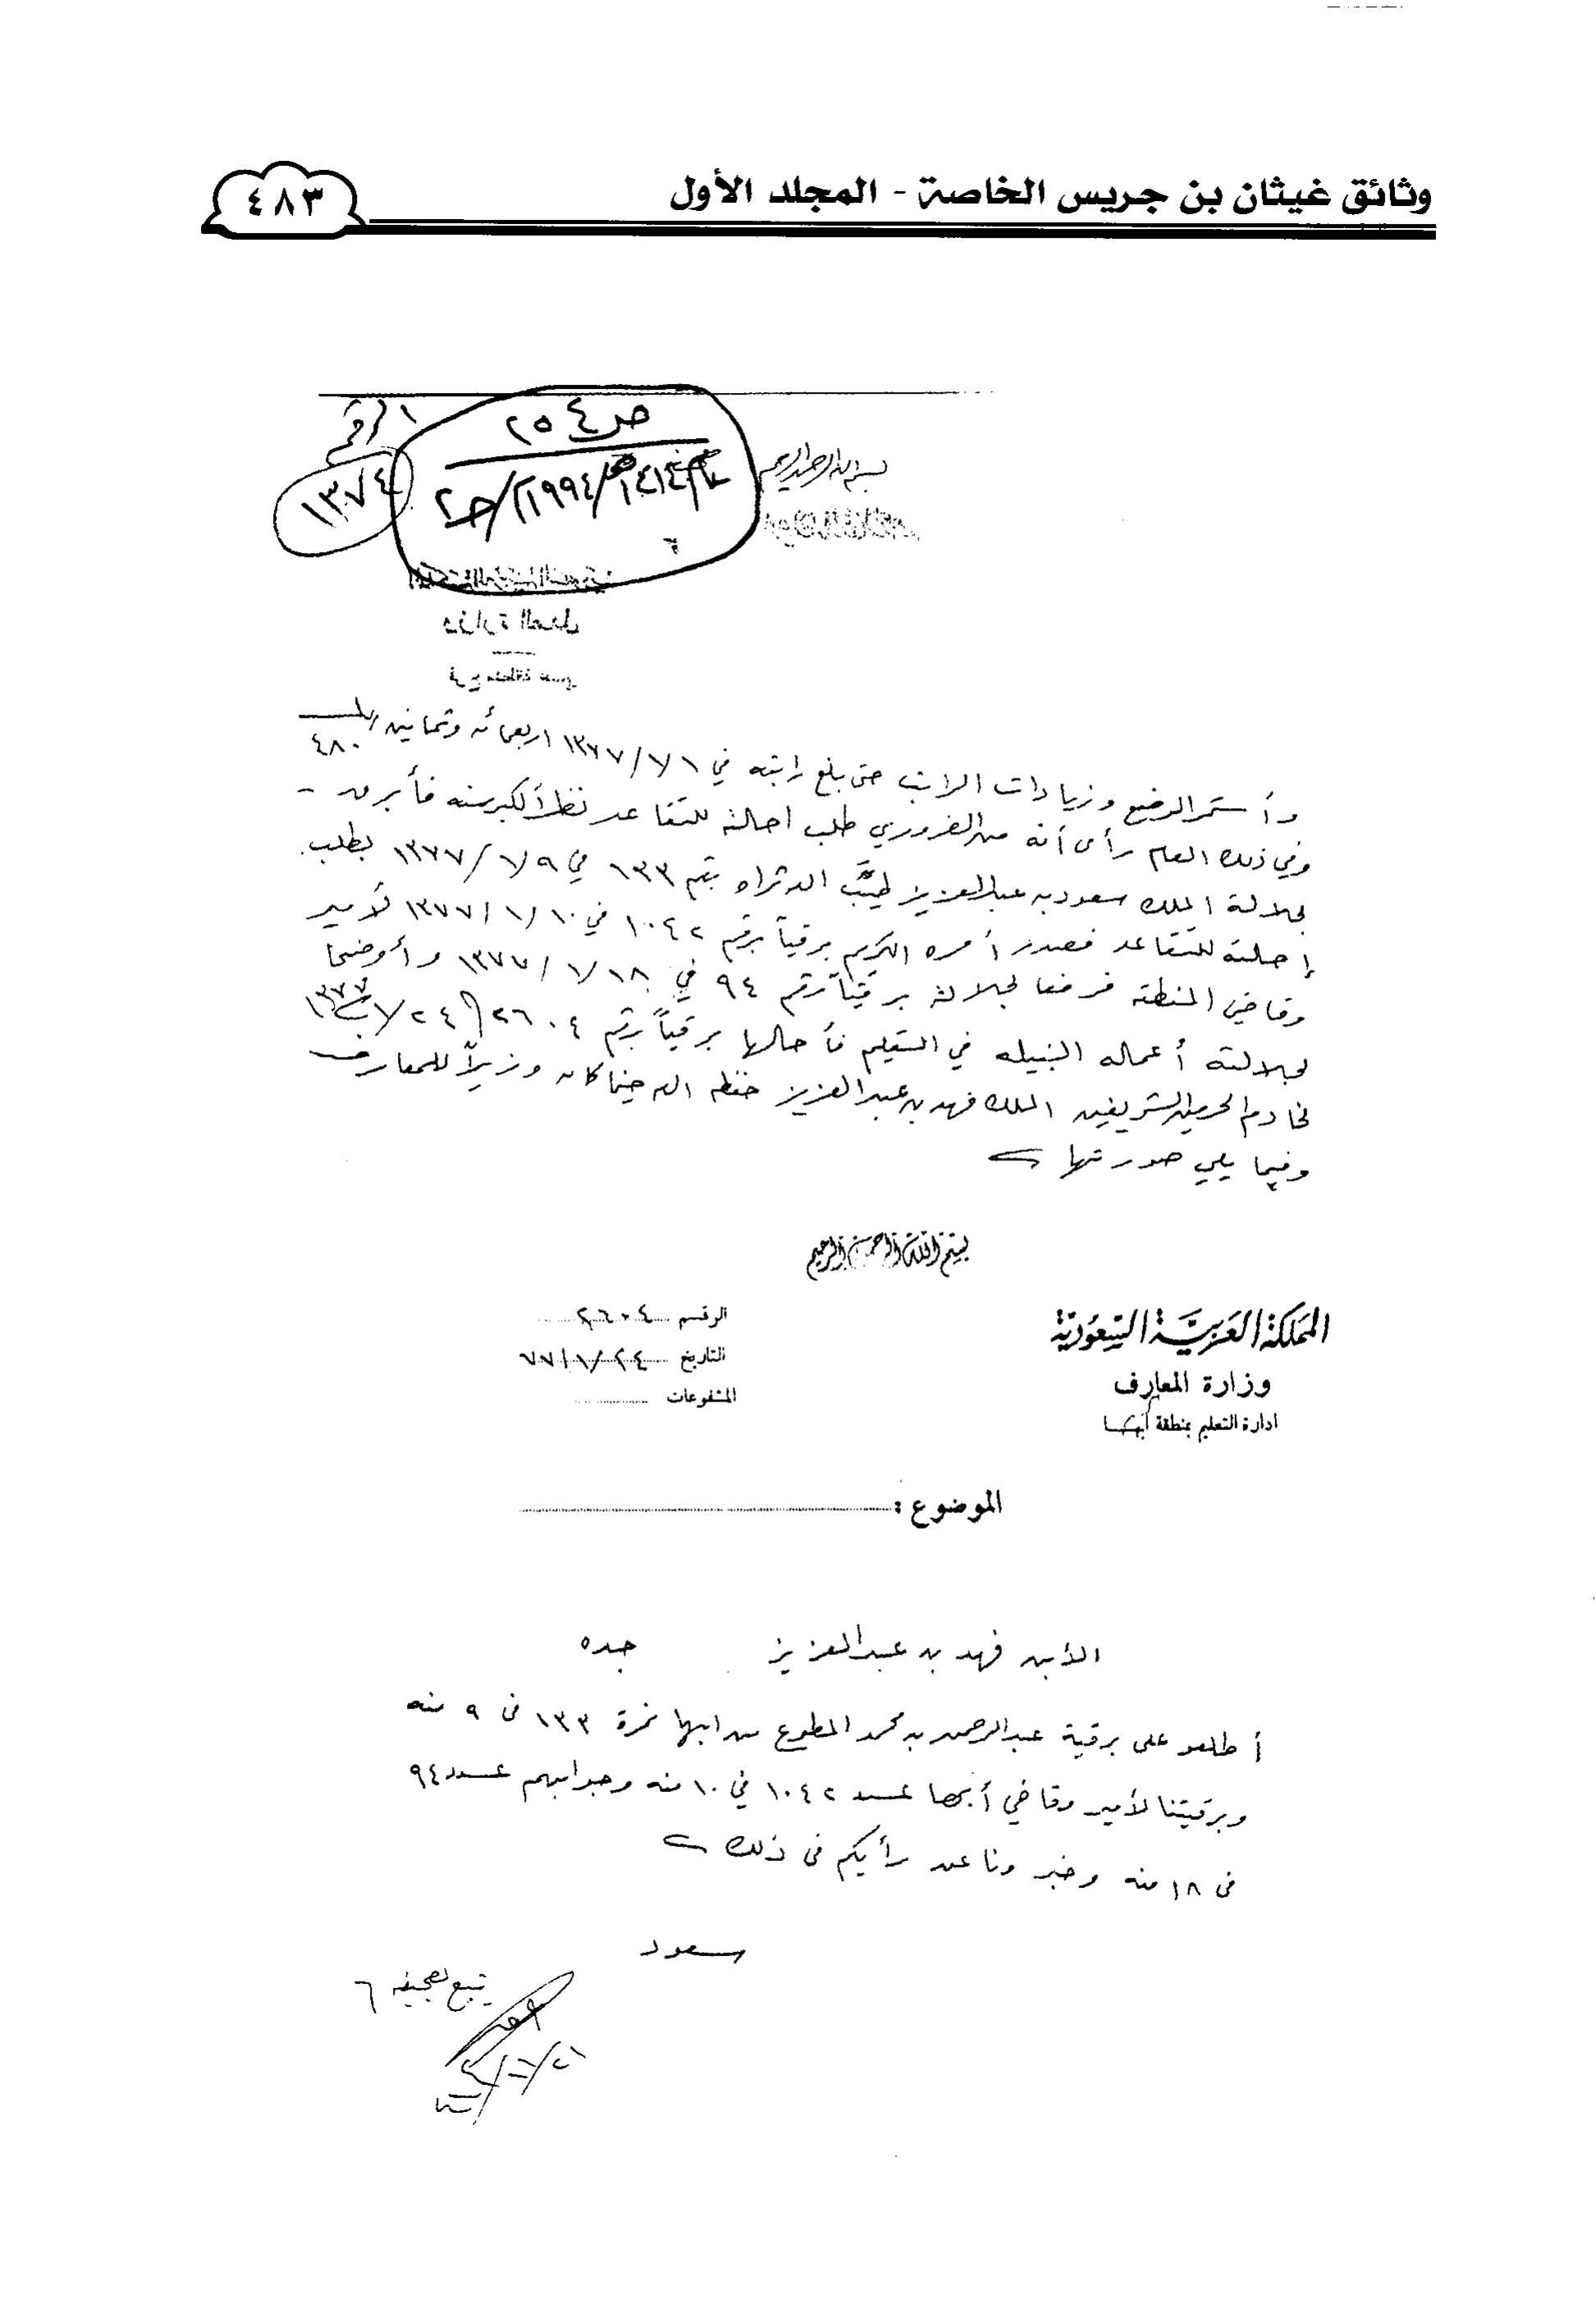 وثائق غيثان بن جريس الخاصة - المجلد الأول
٤٨٣
الرقم
١٣٧٤
ص ٢٥٤
١٤١٤هـ/١٩٩٤م/جـ٢
بسم الله الرحمن الرحيم
وزارة العدل
وأستمر الوضع وزيادات الراتب حتى بلغ راتبه في ١/٧/١٣٧٧ اربعمائه وثمانين ريال
٤٨٠
وفي ذلك العام رأى أنه من الضروري طلب احالته للتقاعد نظراً لكبر سنه فأبرق -
لجلالة الملك سعود بن عبدالعزيز طيب الله ثراه برقم ١٣٣ في ١/٩/١٣٧٧ بطلب
إحالته للتقاعد فصدر أمره الكريم برقياً برقم ١٠٤٢ في ١/١٠/١٣٧٧ لأمير
وقاضي المنطقه فرفعا لجلالته برقياً رقم ٩٤ في ١/١٨/١٣٧٧ وأوضحا
لجلالته أعماله النبيله في التعليم فأحالها برقياً برقم ٢٦٠٤ في ٢٤/١/١٣٧٧
لخادم الحرمين الشريفين الملك فهد بن عبدالعزيز حفظه الله حينما كان وزيراً للمعارف
وفيما يلي صورتها
بسم الله الرحمن الرحيم
المملكة العربية السعودية
وزارة المعارف
ادارة التعليم بمنطقة أبها
الرقم ٢٦٠٤
التاريخ ٢٤/١/٧٧
المشفوعات
الموضوع :
الأبن فهد بن عبدالعزيز جده
أطلعو على برقية عبدالرحمن بن محمد المطوع من ابها نمرة ١٣٣ في ٩ منه
وبرقيتنا لأمير وقاضي أبها عدد ١٠٤٢ في ١٠ منه وجوابهم عدد ٩٤
في ١٨ منه وخبرونا عن رأيكم في ذلك
سعود
يتبع لصحيفه ٦